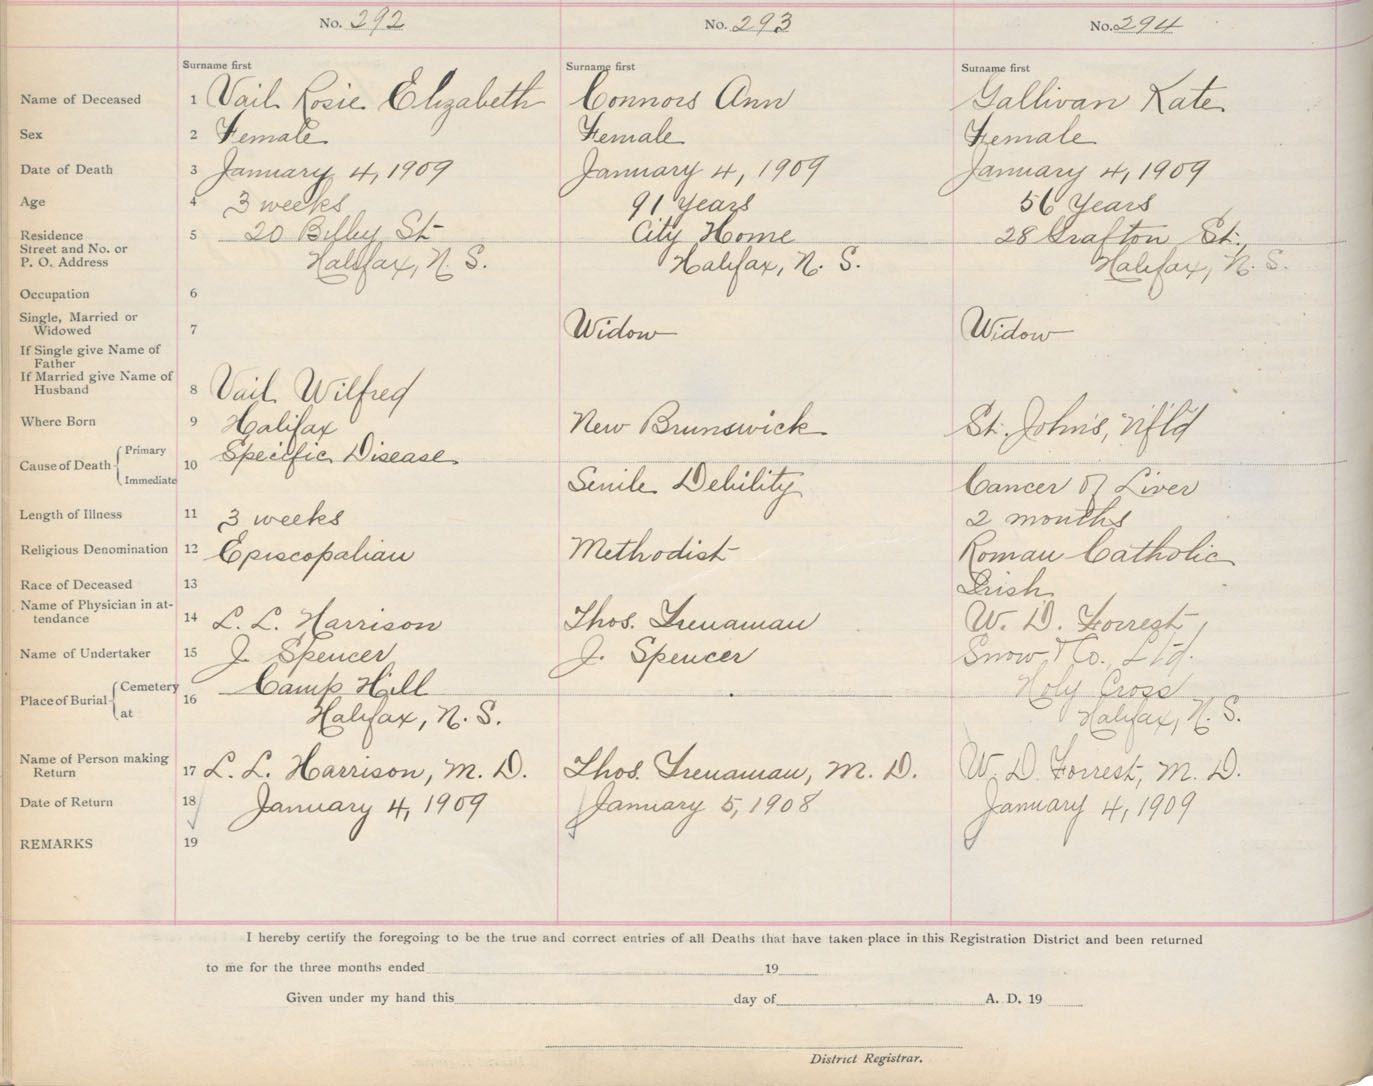 No. 292 No. 293 No. 294
Surname first Surname first Surname first
Name of Deceased 1 Vail Rosie Elizabeth Connors Ann Gallivan Kate
Sex 2 Female Female Female
Date of Death 3 January 4, 1909 January 4, 1909 January 4, 1909
Age 4 3 weeks 91 Years 56 Years
Residence 5 20 Bilby St City Home 28 Grafton St.,
Street and No. or
P. O. Address Halifax, N. S. Halifax, N. S. Halifax, N. S.
Occupation 6
Single, Married or
Widowed 7 Widow Widow
If Single give Name of
Father
If Married give Name of
Husband 8 Vail Wilfred
Where Born 9 Halifax New Brunswick St. John's, Nf'l'd
Cause of Death Primary 10 Specific Disease
Immediate Senile Debility Cancer of Liver
Length of Illness 11 3 weeks 2 months
Religious Denomination 12 Episcopalian Methodist Roman Catholic
Race of Deceased 13 Irish
Name of Physician in at-
tendance 14 L. L. Harrison Thos. Trenaman W. D. Forrest
Name of Undertaker 15 J. Spencer J. Spencer Snow & Co. Ltd.
Place of Burial Cemetery 16 Camp Hill Holy Cross
at Halifax, N. S. Halifax, N. S.
Name of Person making
Return 17 L. L. Harrison, M. D. Thos. Trenaman, M. D. W. D. Forrest, M. D.
Date of Return 18 January 4, 1909 January 5, 1908 January 4, 1909
REMARKS 19
I hereby certify the foregoing to be the true and correct entries of all Deaths that have taken place in this Registration District and been returned
to me for the three months ended 19
Given under my hand this day of A. D. 19
District Registrar.